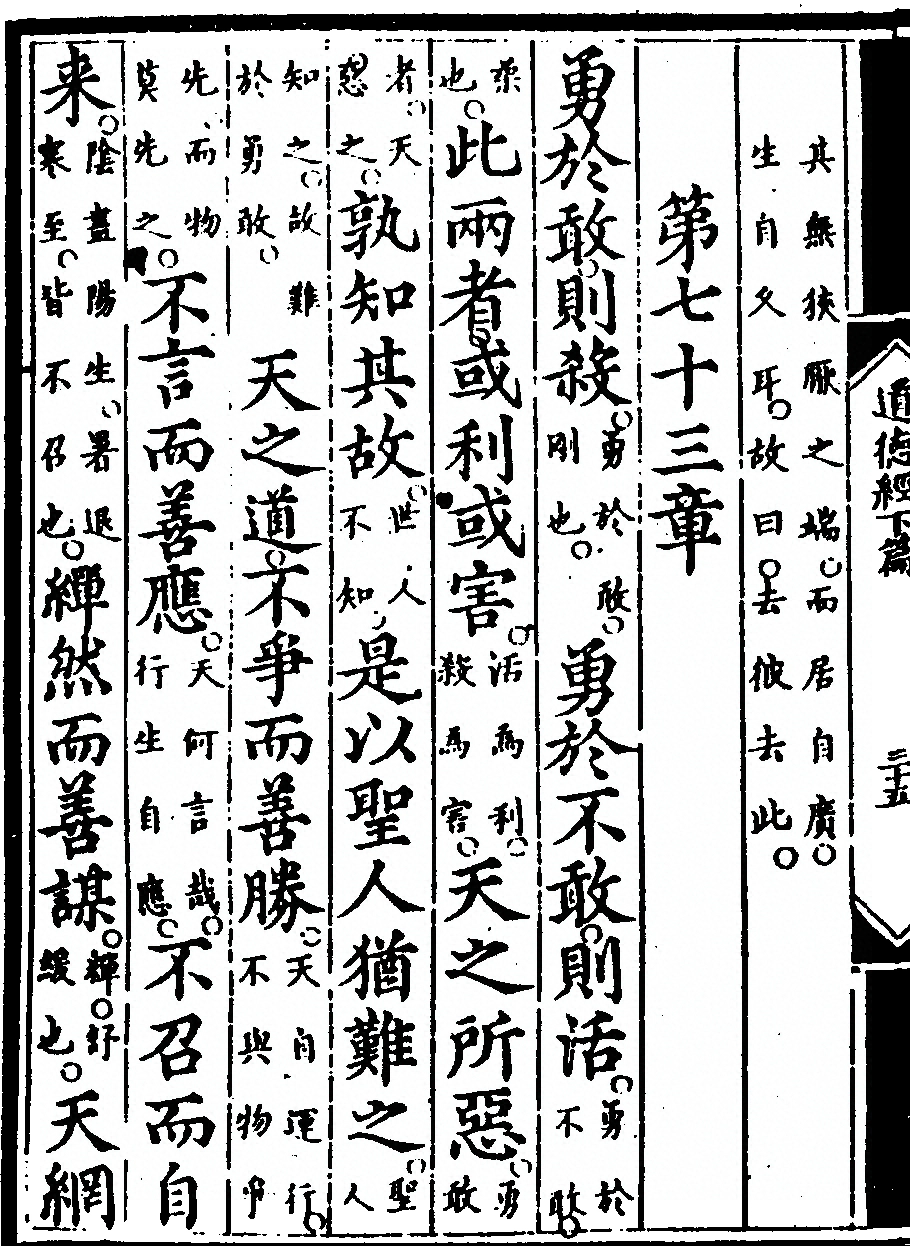 道德經下篇 三十五
其無狹厭之端。而居自廣。生自久耳。故曰。去彼去此。
第七十三章
勇於敢。則殺。勇於敢。剛也。勇於不敢。則活。勇於不敢。
柔也。此兩者。或利或害。活為利。殺為害。天之所惡。勇敢
者。天惡之。孰知其故。世人不知。是以聖人猶難之。聖人
知之。故難於勇敢。天之道。不爭而善勝。天自運行。不與物爭
先、而物莫先之。不言而善應。天何言哉。行生自應。不召而自
来。陰盡陽生。暑退寒至。皆不召也。繟然而善謀。繟。紓緩也。天網